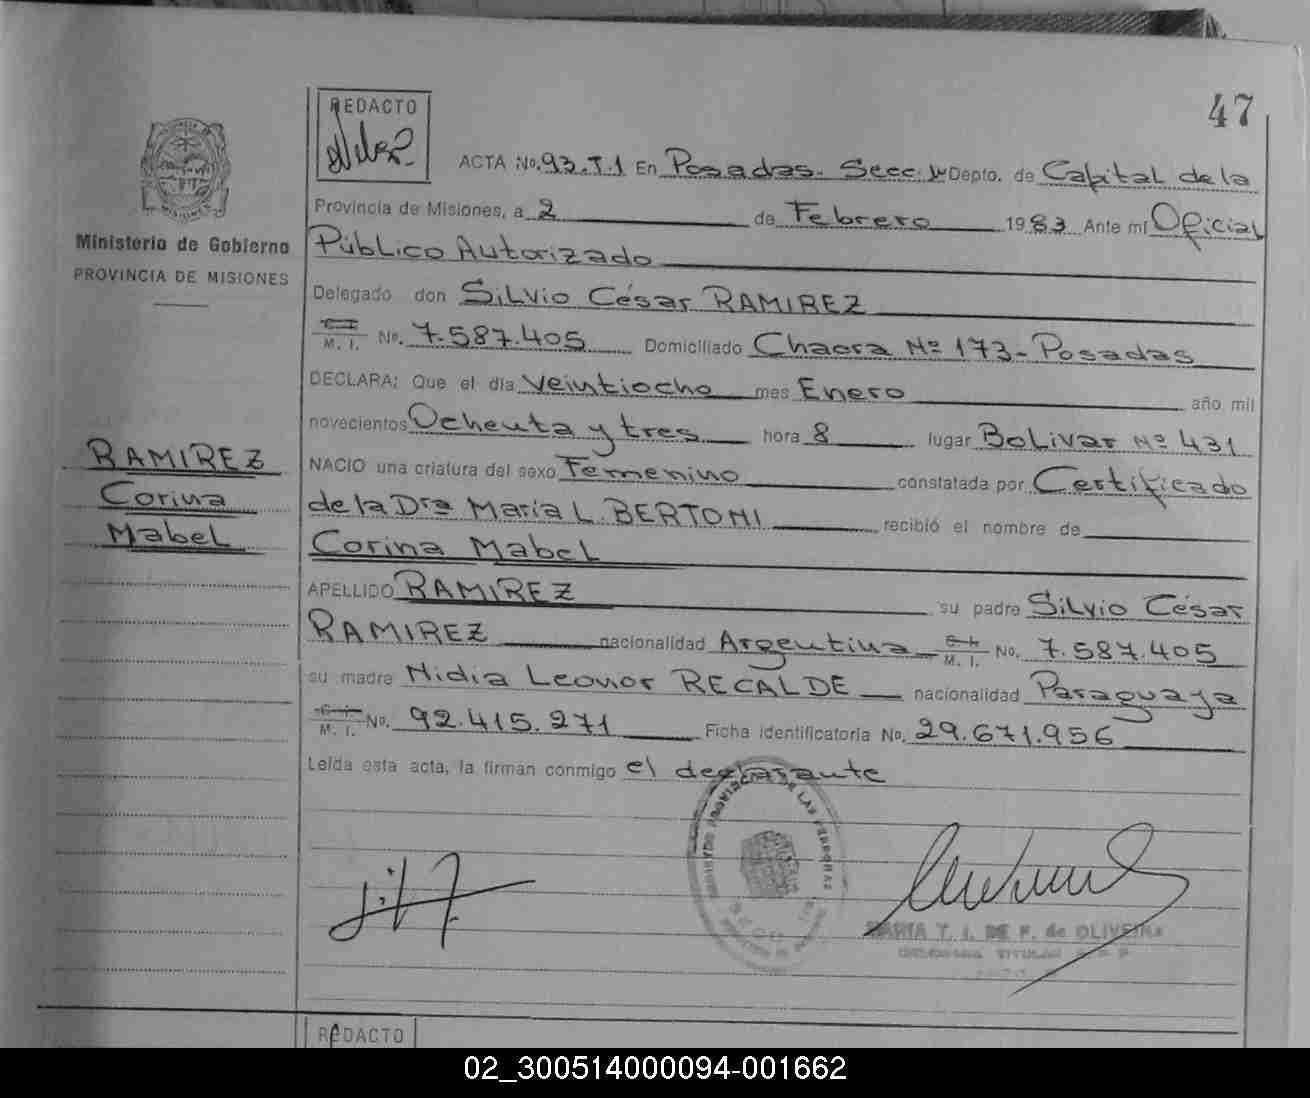 47
REDACTO
ACTA No. 93.T.1 En Posadas. Secc. 1ª Depto. de Capital de la
Provincia de Misiones, a 2 de Febrero 1983 Ante mí Oficial
Público Autorizado
Ministerio de Gobierno
PROVINCIA DE MISIONES
Delegado don Silvio César RAMIREZ
M. I. No. 7.587.405 Domiciliado Chacra Nº 173 - Posadas
DECLARA: Que el día veintiocho mes Enero año mil
novecientos Ochenta y tres hora 8 lugar Bolivar Nº 431
NACIO una criatura del sexo Femenino constatada por Certificado
de la Dra María L. BERTONI recibió el nombre de
Corina Mabel
RAMIREZ
Corina
Mabel
APELLIDO RAMIREZ su padre Silvio César
RAMIREZ nacionalidad Argentina M. I. No. 7.587.405
su madre Nidia Leonor RECALDE nacionalidad Paraguaya
M. I. No. 92.415.271 Ficha identificatoria No. 29.671.956
Leída esta acta, la firman conmigo el declarante
MARIA T. I. DE F. de OLIVEIRA
REDACTO
02_300514000094-001662